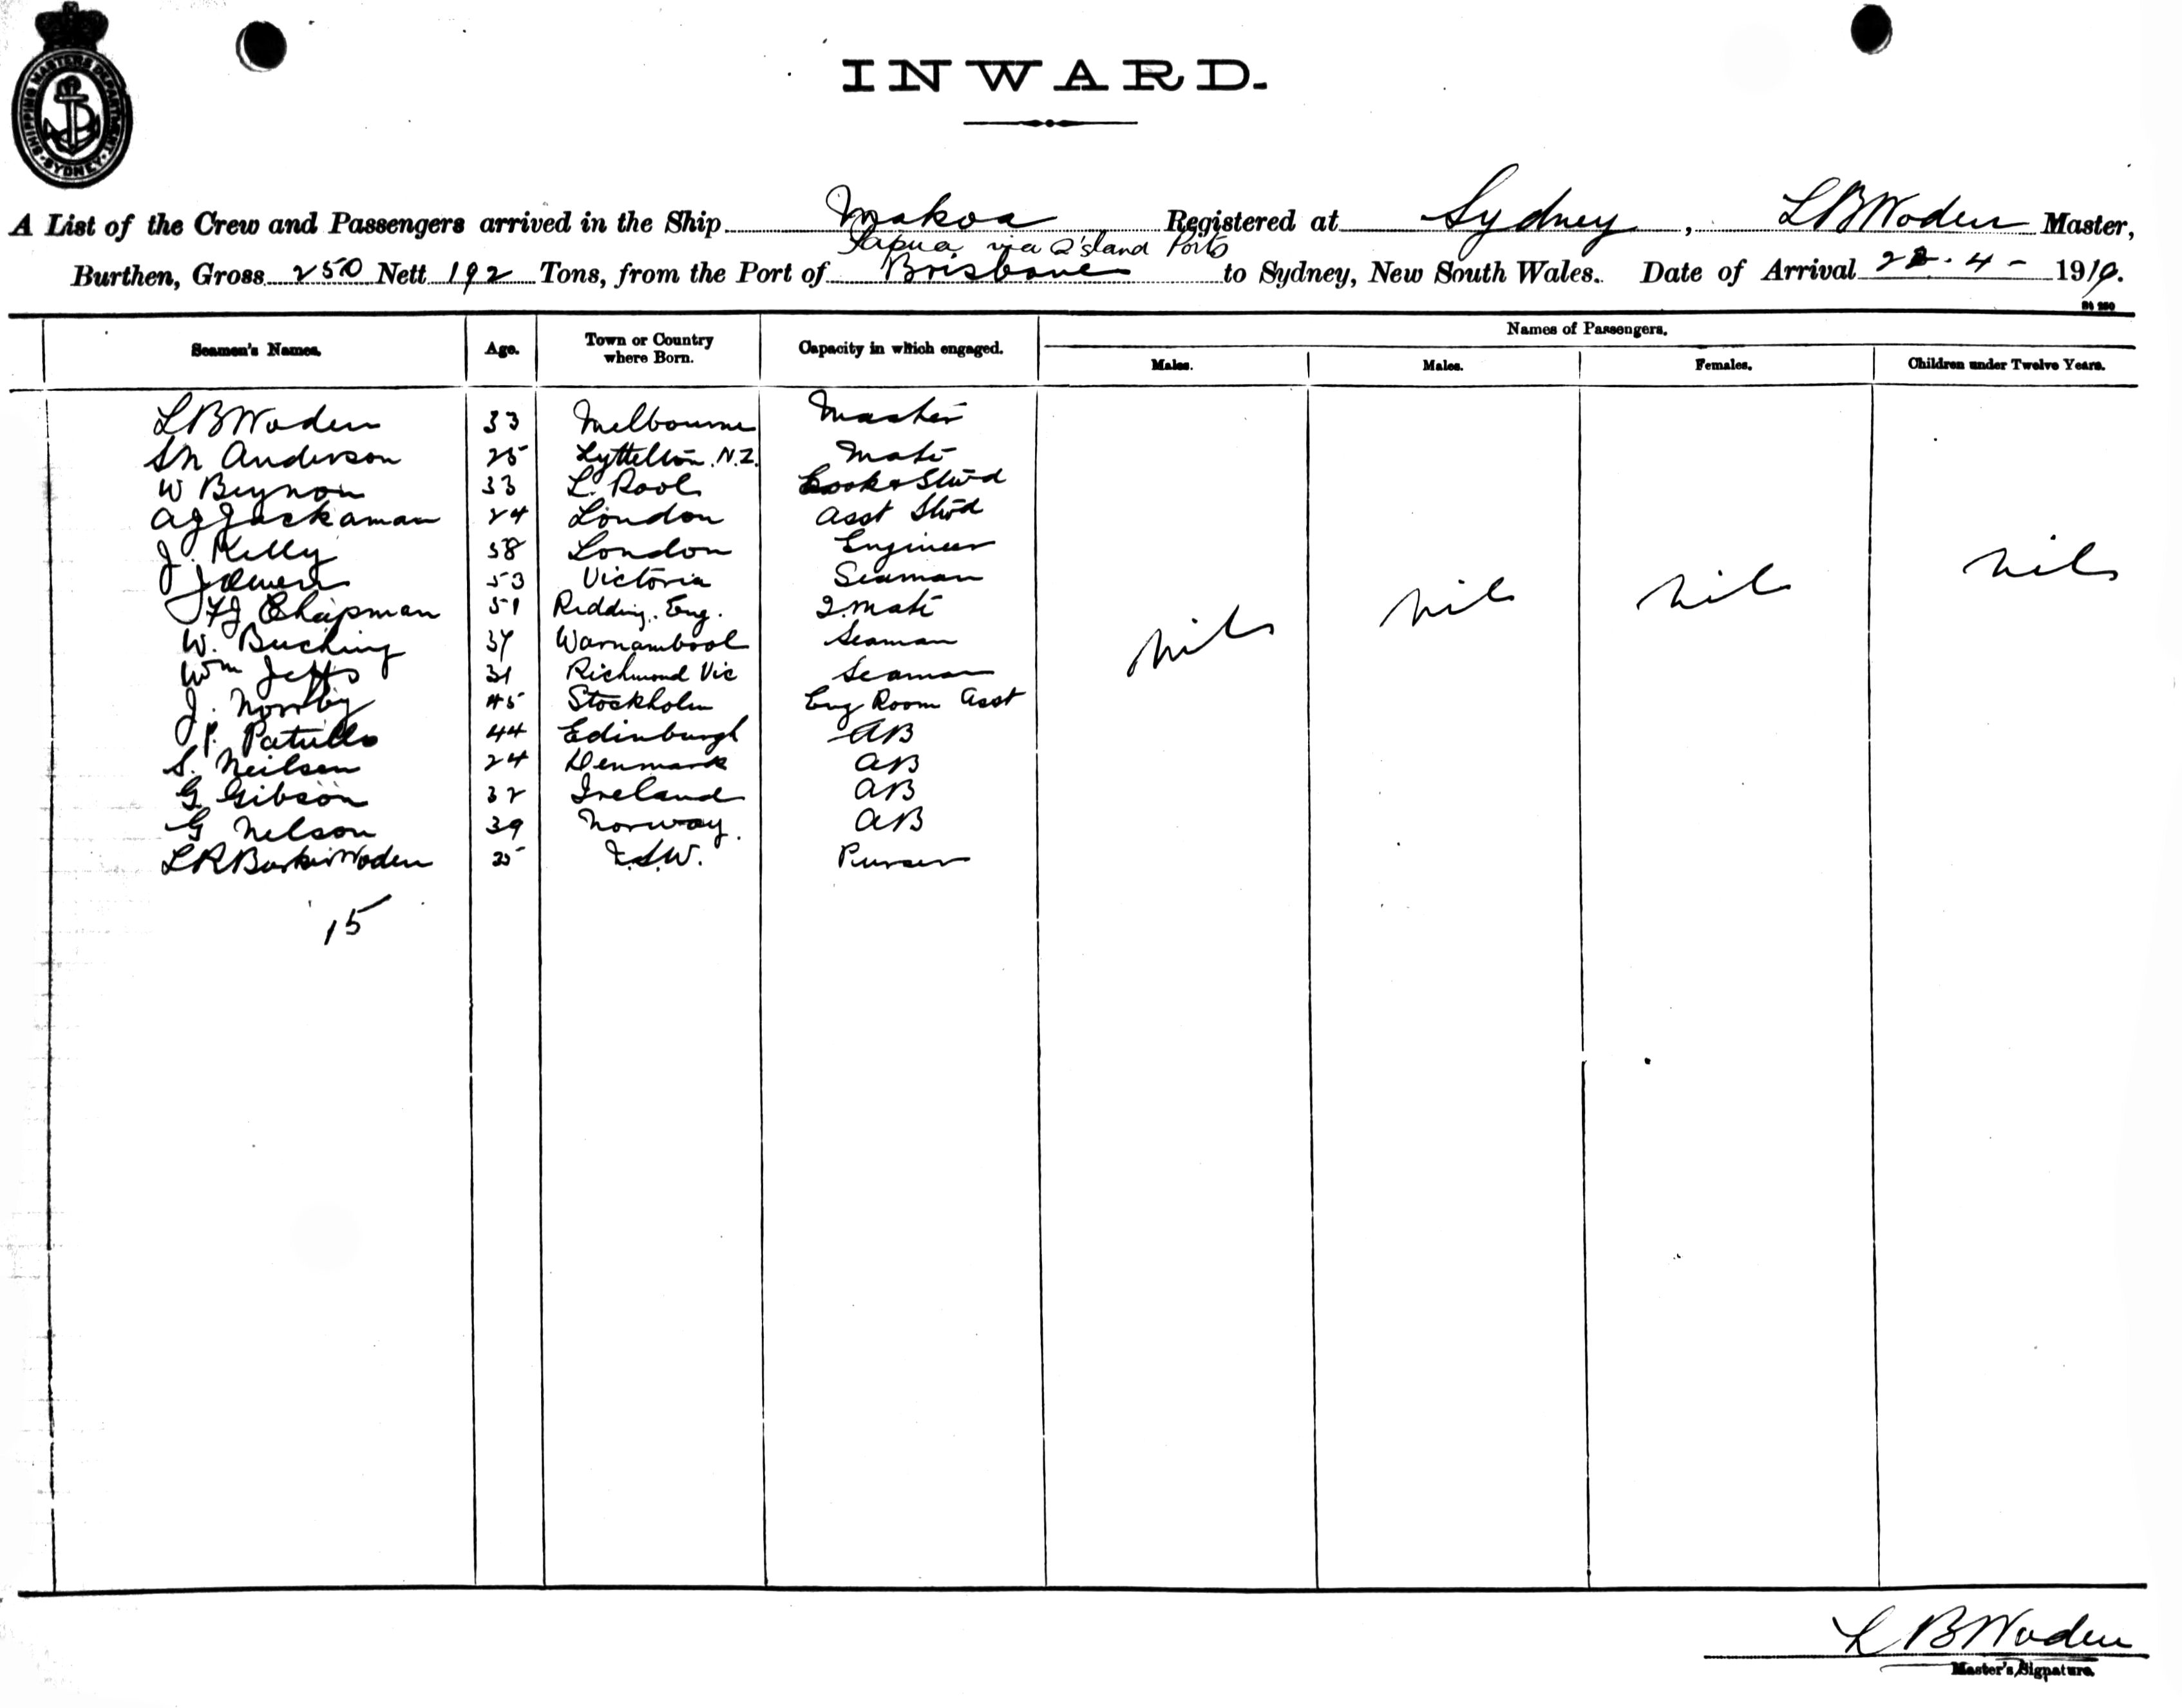 SHIPPING MASTERS DEPARTMENT · SYDNEY ·
INWARD.
A List of the Crew and Passengers arrived in the Ship Makoa Registered at Sydney, L B Woden Master,
Papua via Island Ports
Burthen, Gross 250 Nett 192 Tons, from the Port of Brisbane to Sydney, New South Wales. Date of Arrival 22.4- 1919.
Names of Passengers.
Seamen's Names. Age. Town or Country where Born. Capacity in which engaged. Males. Males. Females. Children under Twelve Years.
L B Woden 33 Melbourne Master
Anderson 25 Lyttelton. N.Z. Mate
W Beynon 33 L. Pool Cook & Stwd
A J Jackaman 24 London Asst Stwd
J. Kelly 58 London Engineer
53 Victoria Seaman
F J Chapman 51 Redding. Eng. 2 Mate
W. Buching 37 Warnambool Seaman
Wm Jeffs 31 Richmond Vic Seaman
J. Norrby 45 Stockholm Eng Room Asst
P. Patullo 44 Edinburgh AB
S. Neilsen 24 Denmark AB
G Gibson 32 Ireland AB
G Nelson 39 Norway. AB
L R Woden 25 Purser
nil nil nil nil
15
L B Woden
Master's Signature.